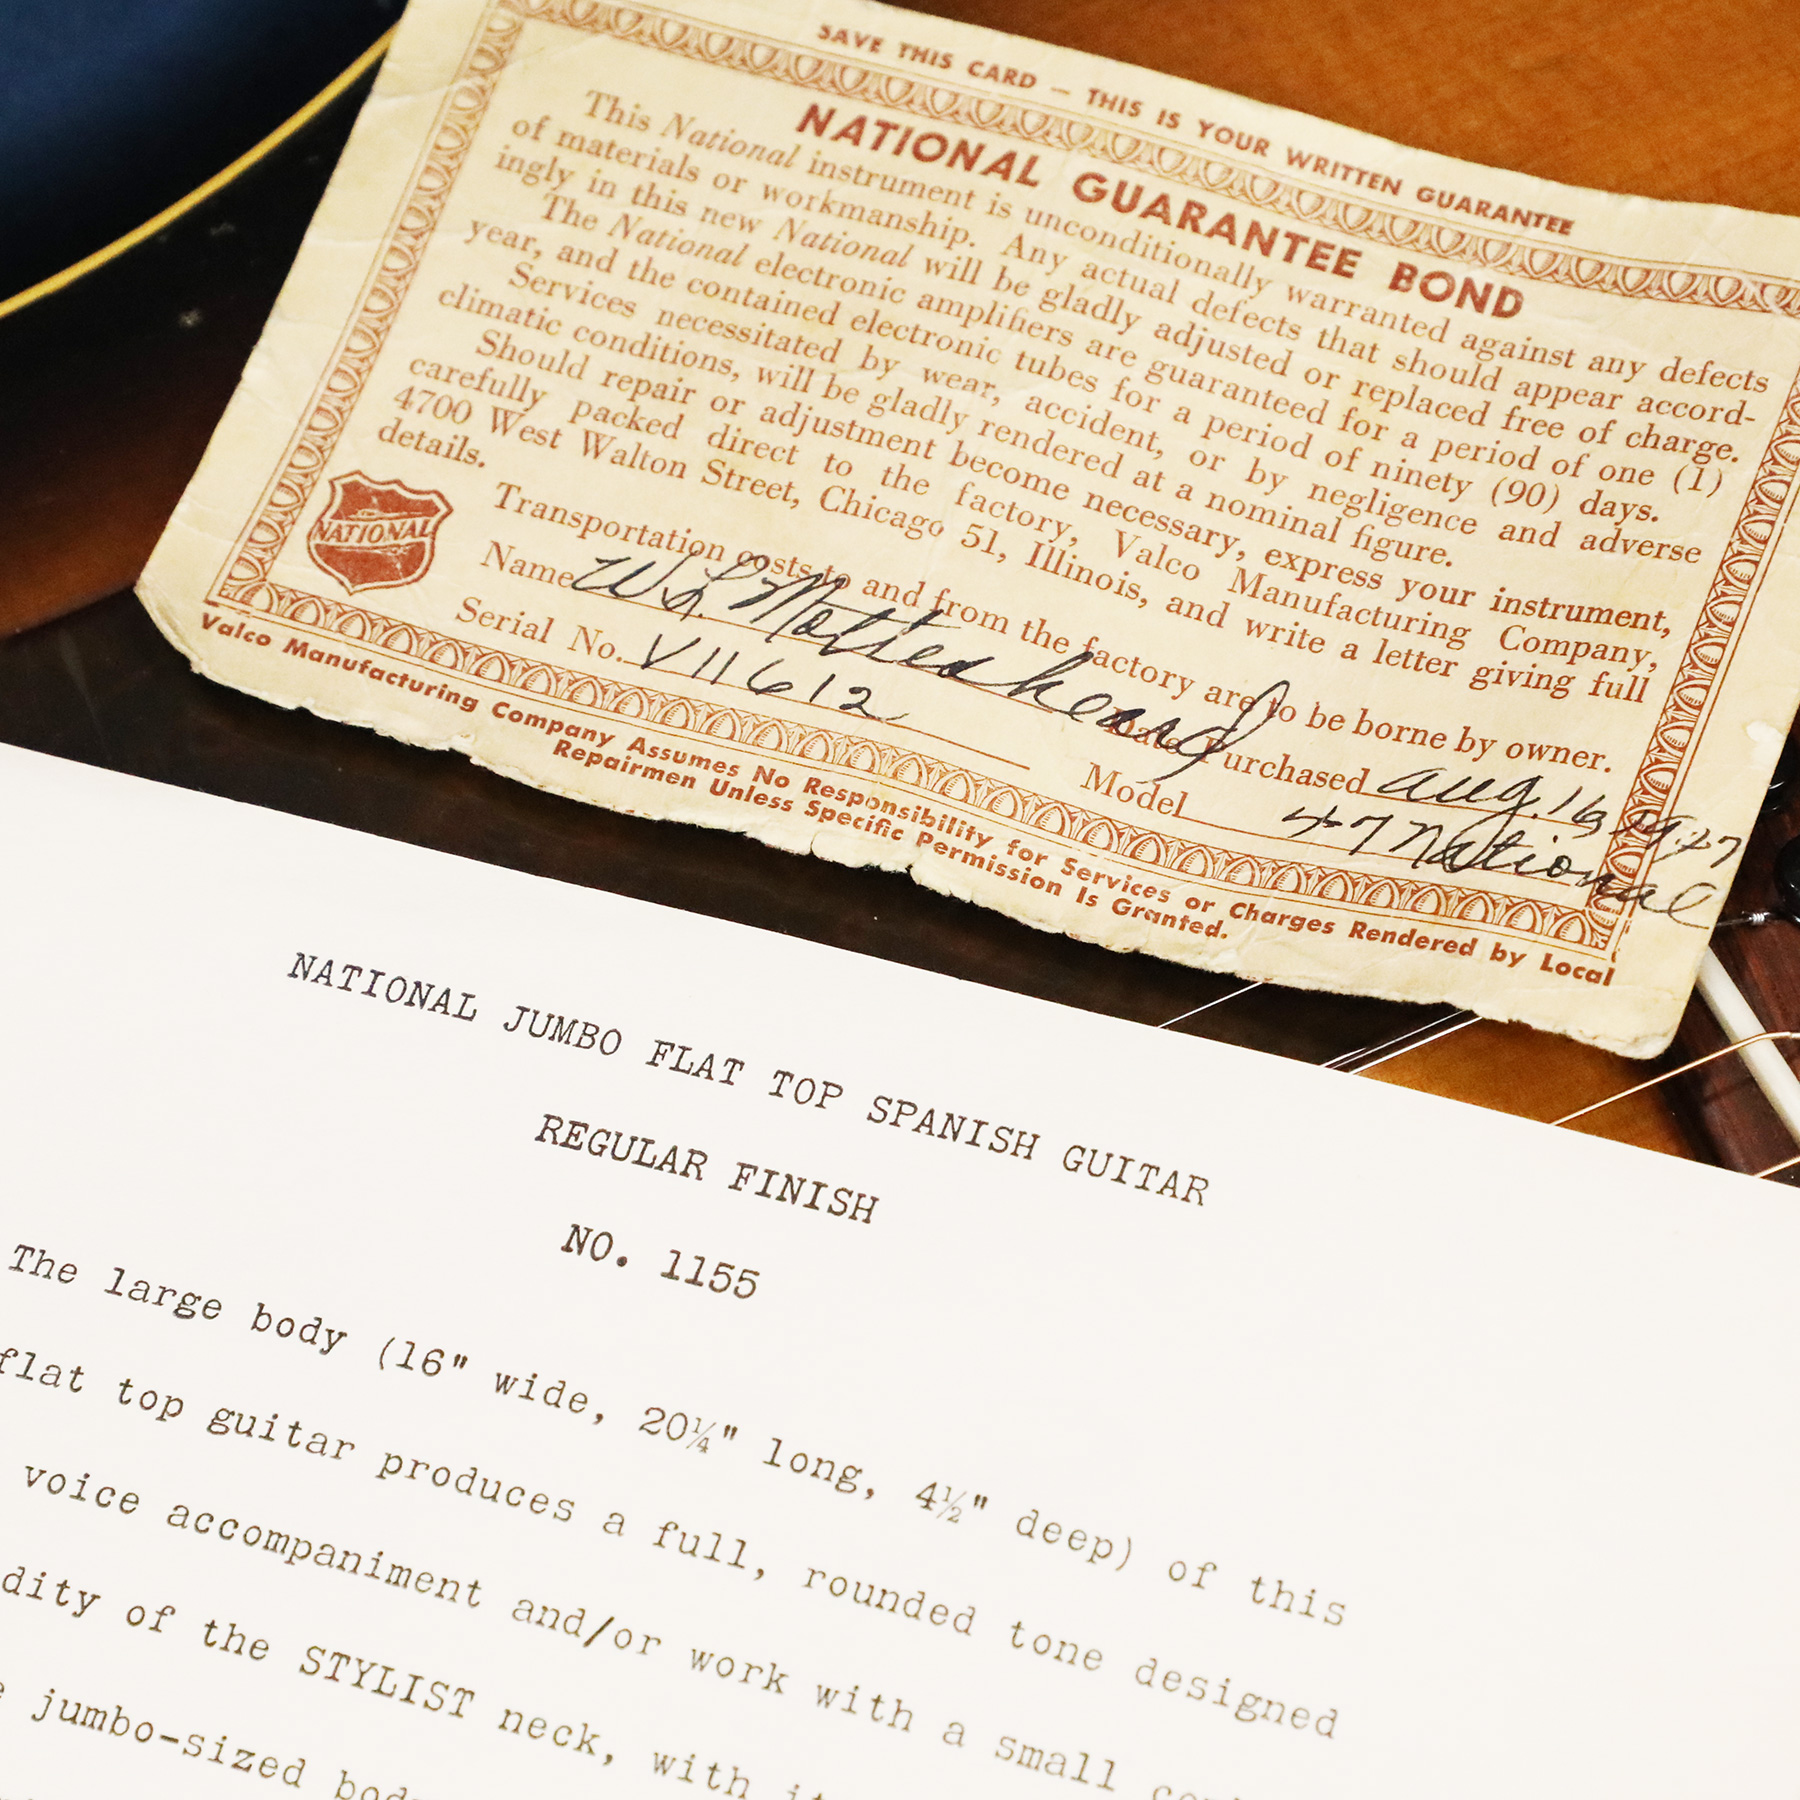 SAVE THIS CARD — THIS IS YOUR WRITTEN GUARANTEE
NATIONAL GUARANTEE BOND
This National instrument is unconditionally warranted against any defects
of materials or workmanship. Any actual defects that should appear accord-
ingly in this new National will be gladly adjusted or replaced free of charge.
The National electronic amplifiers are guaranteed for a period of one (1)
year, and the contained electronic tubes for a period of ninety (90) days.
Services necessitated by wear, accident, or by negligence and adverse
climatic conditions, will be gladly rendered at a nominal figure.
Should repair or adjustment become necessary, express your instrument,
carefully packed direct to the factory, Valco Manufacturing Company,
4700 West Walton Street, Chicago 51, Illinois, and write a letter giving full
details.
Transportation costs to and from the factory are to be borne by owner.
NATIONAL
Name W. L. Mottersheard
Date Purchased Aug. 16 1947
Serial No. V11612
Model 47 National
Valco Manufacturing Company Assumes No Responsibility for Services or Charges Rendered by Local
Repairmen Unless Specific Permission Is Granted.
NATIONAL JUMBO FLAT TOP SPANISH GUITAR
REGULAR FINISH
NO. 1155
The large body (16" wide, 20¼" long, 4½" deep) of this
flat top guitar produces a full, rounded tone designed
voice accompaniment and/or work with a small
dity of the STYLIST neck, with
jumbo-sized